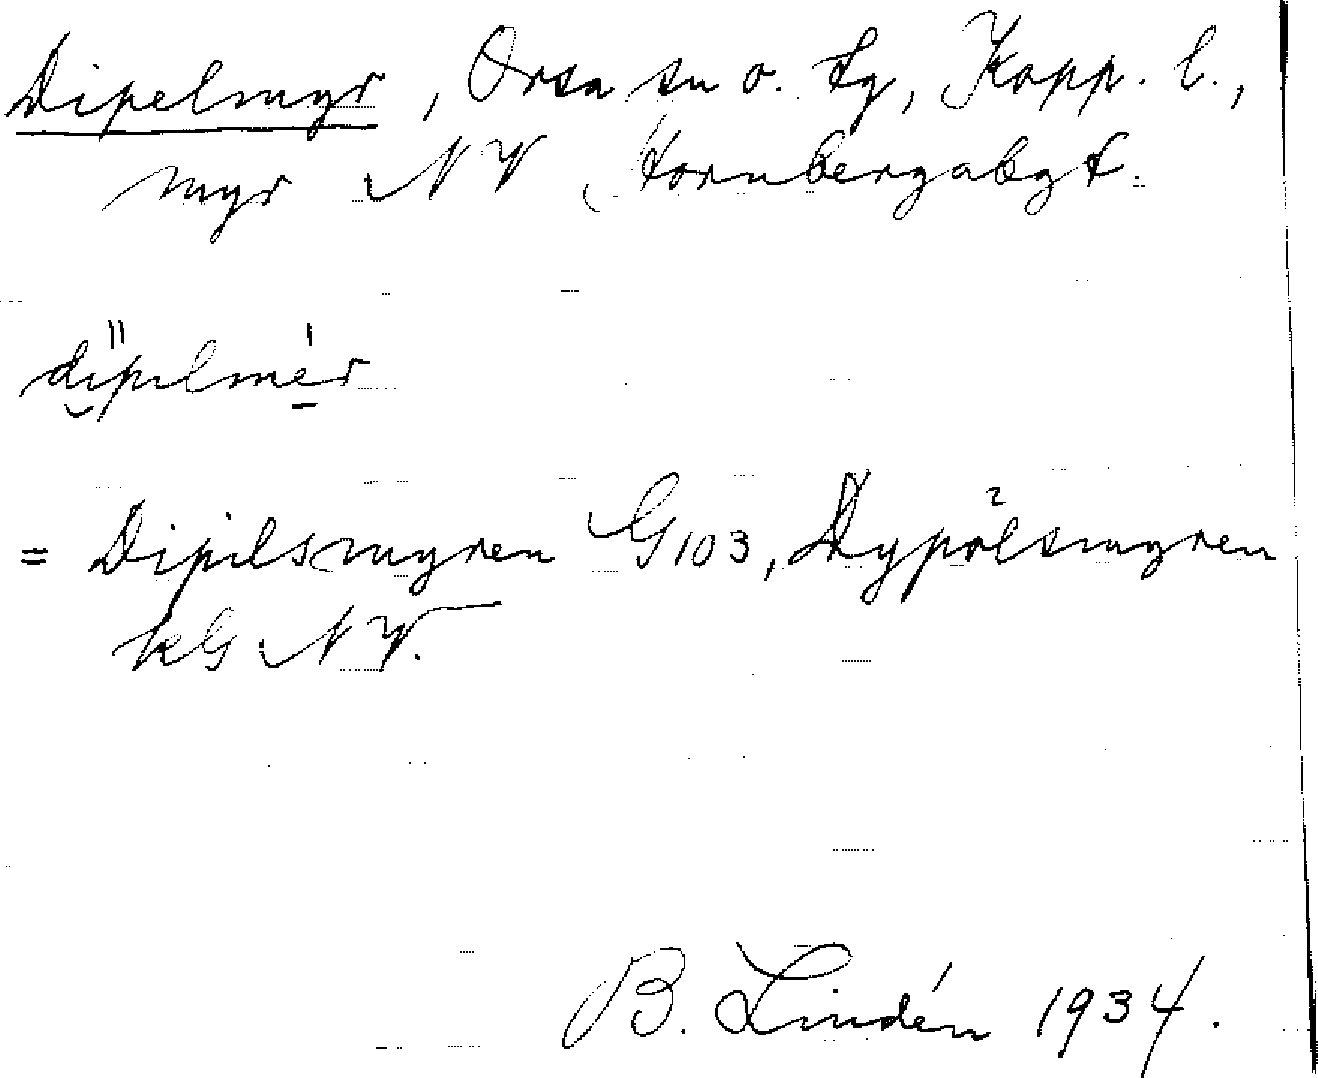 Dipelmyr, Orsa sn o. tg, Kopp. l.,
myr NV Hornbergabgt.
dipilmèr
= Dipilsmyren G103, Dypölsmyren
kG NV.
B. Lindén 1934.